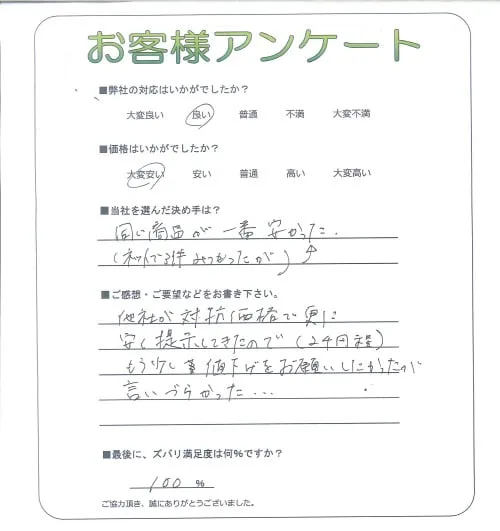 お客様アンケート
■弊社の対応はいかがでしたか？
大変良い 良い 普通 不満 大変不満
■価格はいかがでしたか？
大変安い 安い 普通 高い 大変高い
■当社を選んだ決め手は？
同じ商品が一番安かった.
(ネットで3件みつかったが)
■ご感想・ご要望などをお書き下さい。
他社が対抗価格で更に
安く提示してきたので(24円程)
もう少し値下げをお願いしたかったが
言いづらかった...
■最後に、ズバリ満足度は何％ですか？
100 %
ご協力頂き、誠にありがとうございました。